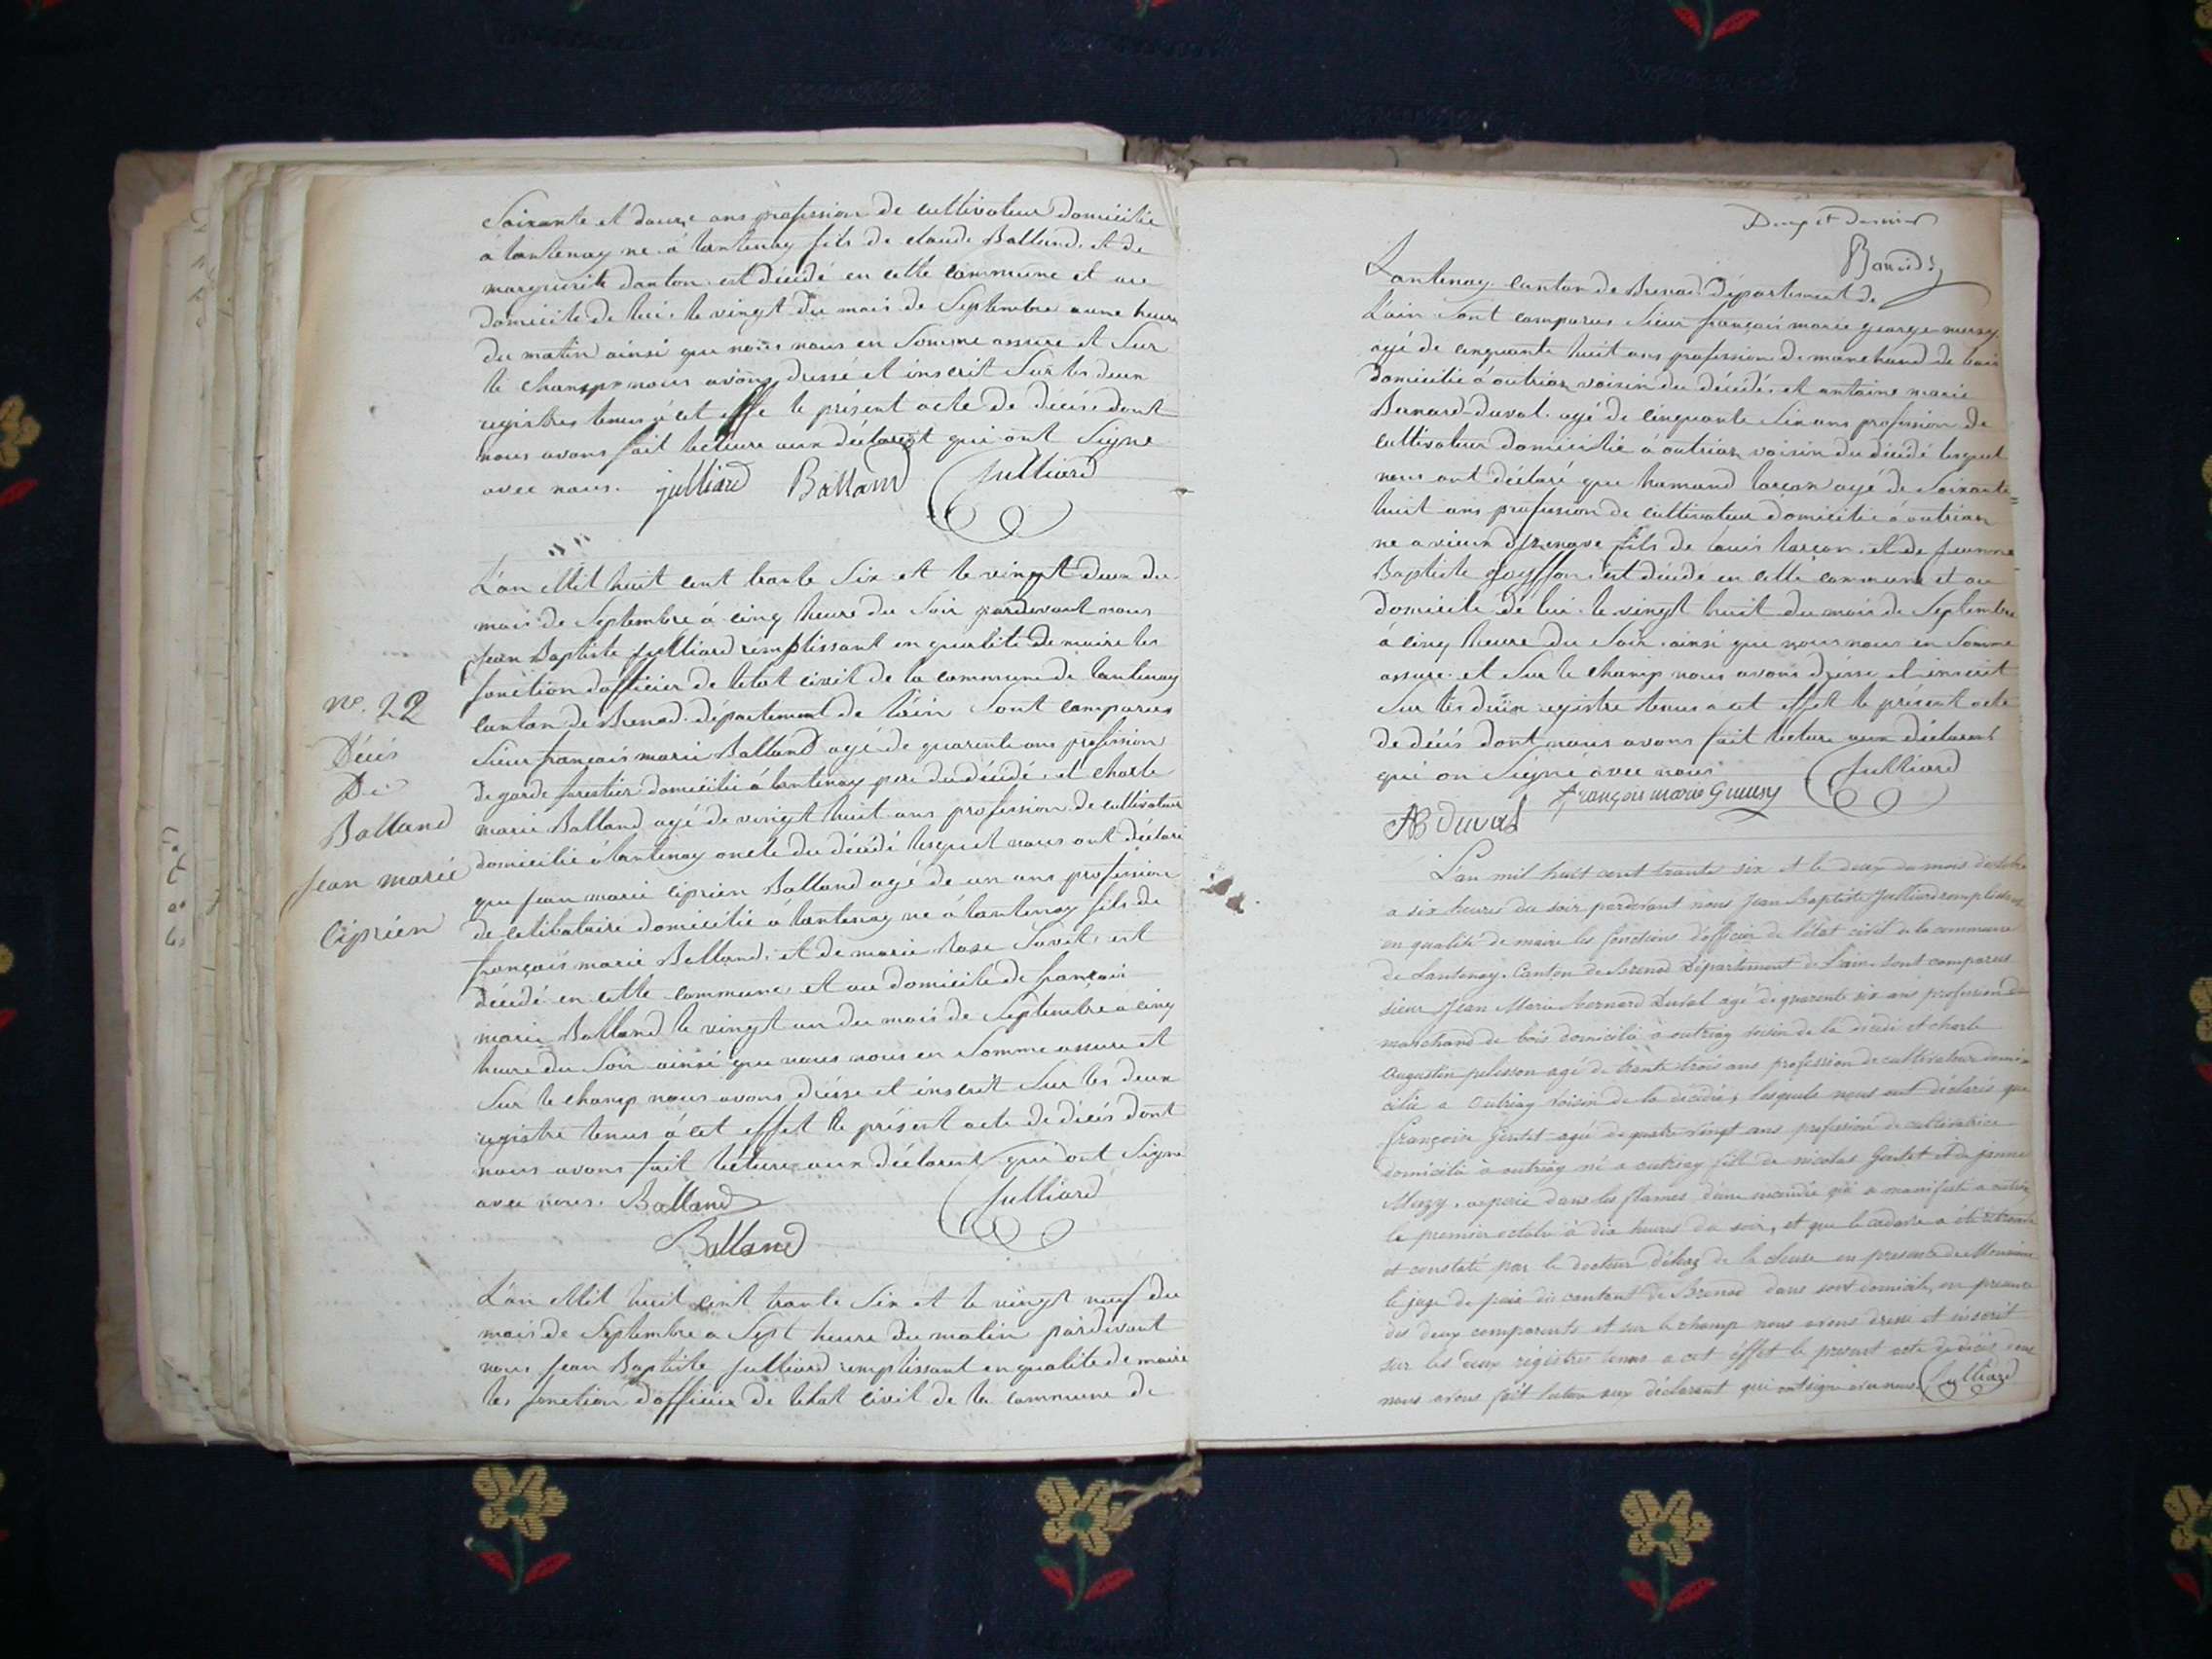 Soixante et douze ans profession de cultivateur domicilie
à lantenay ne à lantenay fils de claude Balland et de
marguerite danton est décédé en cette commune et au
domicile de lui le vingt du mois de Septembre a une heure
du matin ainsi que nous nous en Somme assure et Sur
le champ nous avons dressé et inscrit Sur les deux
registres tenus à cet effe le présent acte de décise dont
nous avons fait lecture aux déclarent qui ont Signe
avec nous. julliard Balland Julliard
L'an Mil huit cent trante Six et le vingt deux du
mois de Septembre à cinq heure du Soir pardevant nous
Jean Baptiste Julliard remplissant en qualité de maire les
fonction dofficier de letat civil de la commune de lantenay
canton de Brenod département de l'ain Sont comparus
Sieur françois marie Balland agé de quarente ans profession
de garde forestier domicilie à lantenay pere du décédé et charle
marie Balland agé de vingt huit ans profession de cultivateur
domicilié à lantenay oncle du décédé lesquel nous ont déclaré
que Jean marie ciprien Balland agé de un ans profession
de célibataire domicilié à lantenay ne à lantenay fils de
françois marie Balland et de marie Rose Savet est
décédé en cette commune et au domicile de françois
marie Balland le vingt un du mois de Septembre a cinq
heure du Soir ainsi que nous nous en Somme assure et
Sur le champ nous avons dresse et inscrit Sur les deux
registre tenus à cet effet le présent acte de décés dont
nous avons fait lecture aux déclarent qui ont Signe
avec nous. Balland Julliard
Balland
n°. 22
Décés
De
Balland
Jean marie
Ciprien
L'an Mil huit cent trante Six et le vingt neuf du
mois de Septembre a Sept heure du matin pardevant
nous Jean Baptiste Julliard remplissant en qualite de maire
les fonction d'officier de letat civil de la commune de
Lantenay canton de Brenod département de
L'ain Sont comparus Sieur françois marie george
agé de cinquante huit ans profession de marchand de bois
domicilié à outriaz voisin du décédé et antoine marie
Bernard duval agé de cinquante Six ans profession de
cultivateur domicilié à outriaz voisin du décédé lesquel
nous ont déclaré que hamand agé de Soixante
huit ans profession de cultivateur domicilié à outriaz
ne a vieux fils de louis et de Jeanne
Baptiste est décédé en cette commune et au
domicile de lui le vingt huit du mois de Septembre
à cinq heure du Soir ainsi que nous nous en Somme
assure et Sur le champ nous avons dresse et inscrit
Sur les deux registre tenus a cet effet le présent acte
de décés dont nous avons fait lecture aux déclarent
qui on Signé avec nous Julliard
françois marie
AB duval
L'an mil huit cent trante six et le deux du mois d'octobre
a six heures du soir pardevant nous Jean Baptiste Julliard remplissant
en qualité de maire les fonctions d'officier de l'état civil de la commune
de Lantenay. Canton de Brenod Département de l'ain. sont comparus
sieur Jean Marie Bernard Duval agé de quarente six ans profession de
marchand de bois domicilié à outriaz voisin de la décédé et charle
augustin pelisson agé de trante trois ans profession de cultivateur domi
cilié a outriaz voisin de la décédée, lesquels nous ont déclarés que
françoise agée de quatre vingt ans profession de cultivatrice
domicilié à outriaz né a outriaz fille de nicolas et de jeanne
a perie dans les flames d'une incendie qui a manifesté a outriaz
le premier octobre à dix heures du soir, et que le cadavre a été
et constaté par le docteur de la cluse en presence de Monsieur
le juge de paix du cantont de Brenod dans sont domicile, en presence
des deux comparents et sur le champ nous avons dressé et inscrit
sur les deux régistres tenus a cet effet le present acte de décés dont
nous avons fait lecture aux déclarent qui ont signé avec nous. Julliard